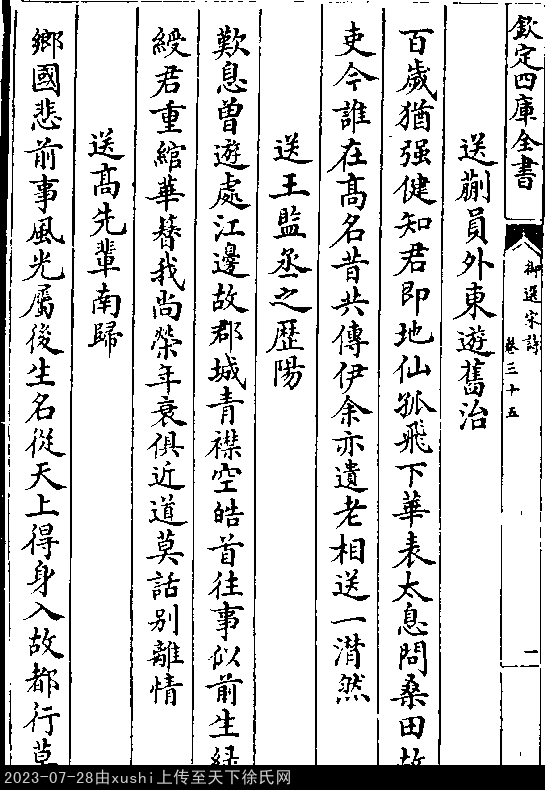 欽定四庫全書
御選宋詩
卷三十五
二
送蒯員外東遊舊治
百歲猶强健知君即地仙孤飛下華表太息問桑田故
吏今誰在髙名昔共傳伊余亦遺老相送一潸然
送王監丞之歷陽
歎息曽遊處江邊故郡城青襟空皓首往事似前生緑
綬君重綰華簪我尚榮年衰俱近道莫話别離情
送髙先輩南歸
鄉國悲前事風光屬後生名從天上得身入故都行草
2023-07-28由xushi上传至天下徐氏网